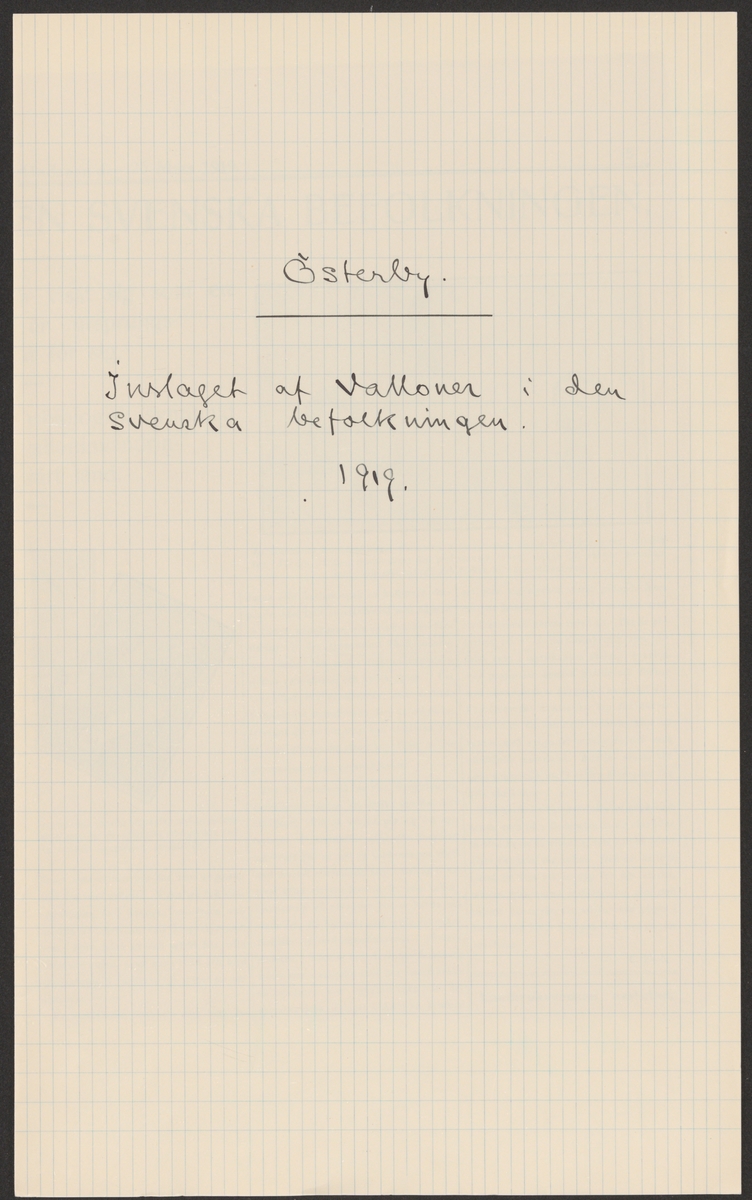 Österby.
Inslaget af Valloner i den
Svenska befolkningen.
1919.